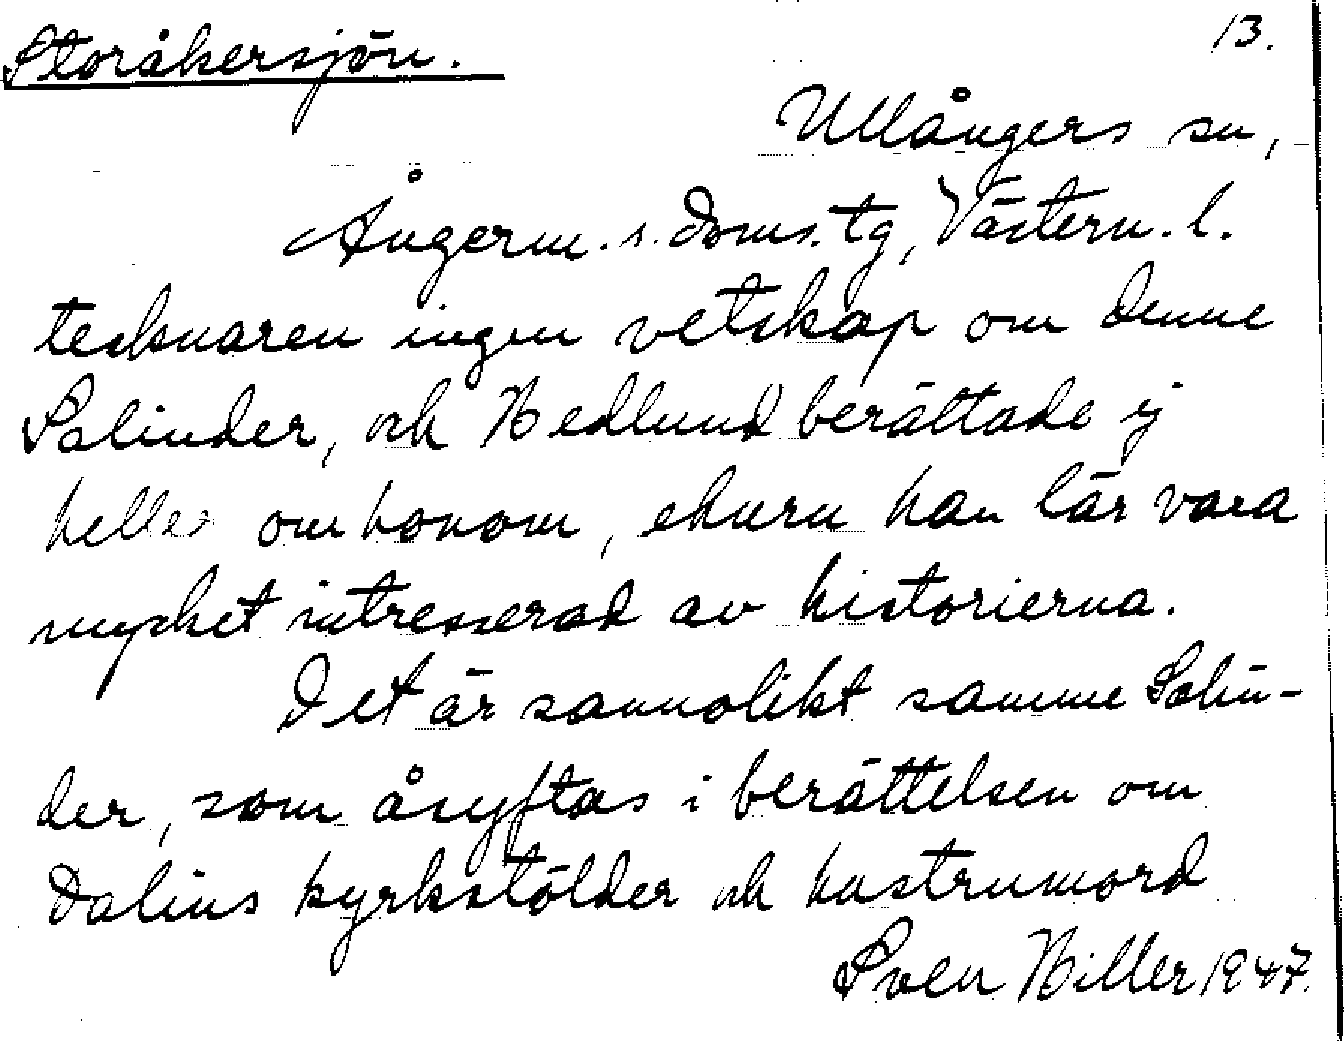 Storåkersjön.
13.
Ullångers sn,
Ångerm. s. doms. tg, Västern. l.
tecknaren ingen vetskap om denne
Salinder, och Hedlund berättade ej
heller om honom, ehuru han lär vara
mycket intresserad av historierna.
Det är sannolikt samme Salin-
der, som åsyftas i berättelsen om
Dalins kyrkstölder och hustrumord
Sven Hiller 1947.